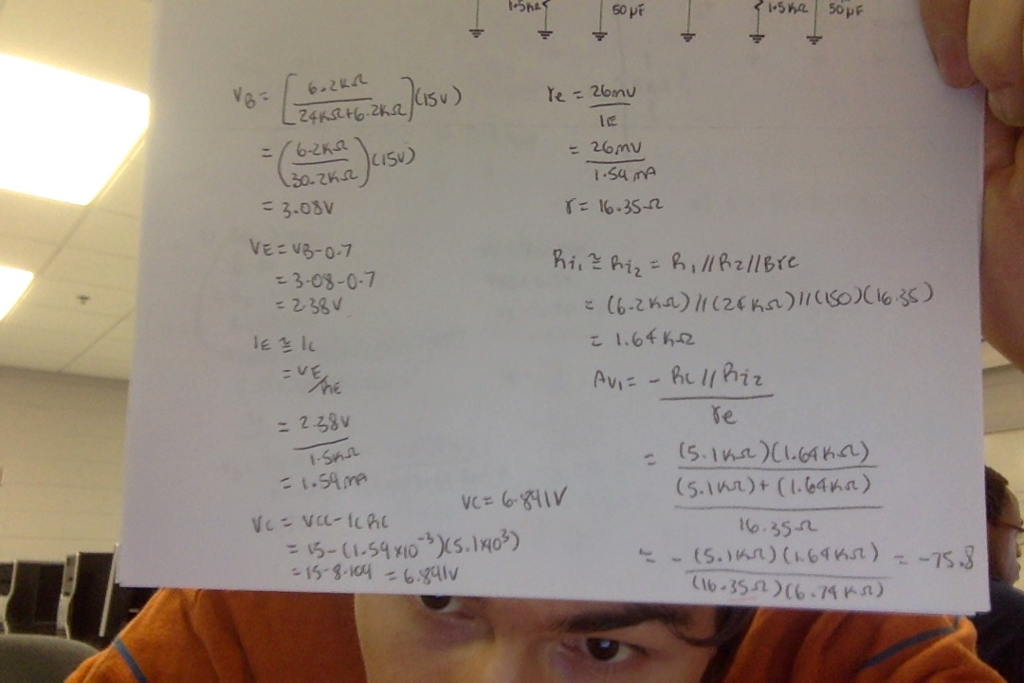 1.5KΩ 50µF 1.5KΩ 50µF
VB = [6.2KΩ / 24KΩ+6.2KΩ](15V)
= (6.2KΩ / 30.2KΩ)(15V)
= 3.08V
VE = VB-0.7
= 3.08-0.7
= 2.38V
IE ≅ IC
= VE/RE
= 2.38V / 1.5KΩ
= 1.59mA
VC = VCC-ICRC
= 15-(1.59x10⁻³)(5.1x10³)
= 15-8.109 = 6.891V
VC = 6.891V
re = 26mV / IE
= 26mV / 1.59mA
r = 16.35Ω
Ri₁ ≅ Ri₂ = R₁//R2//Bre
= (6.2KΩ)//(24KΩ)//(150)(16.35)
= 1.64KΩ
AV₁ = - RC//Ri₂ / re
= (5.1KΩ)(1.64KΩ) / (5.1KΩ)+(1.64KΩ)
16.35Ω
= - (5.1KΩ)(1.64KΩ) / (16.35Ω)(6.74KΩ) = -75.8